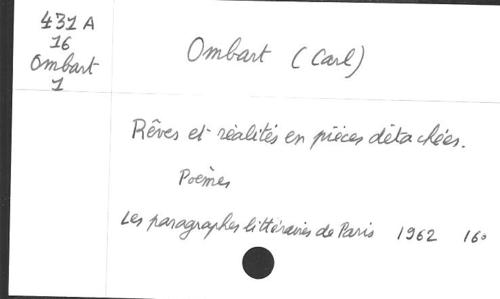 431 A
16
Ombart
1
Ombart (Carl)
Rêves et réalités en pièces détachées.
Poèmes
Les paragraphes littéraires de Paris 1962 16°